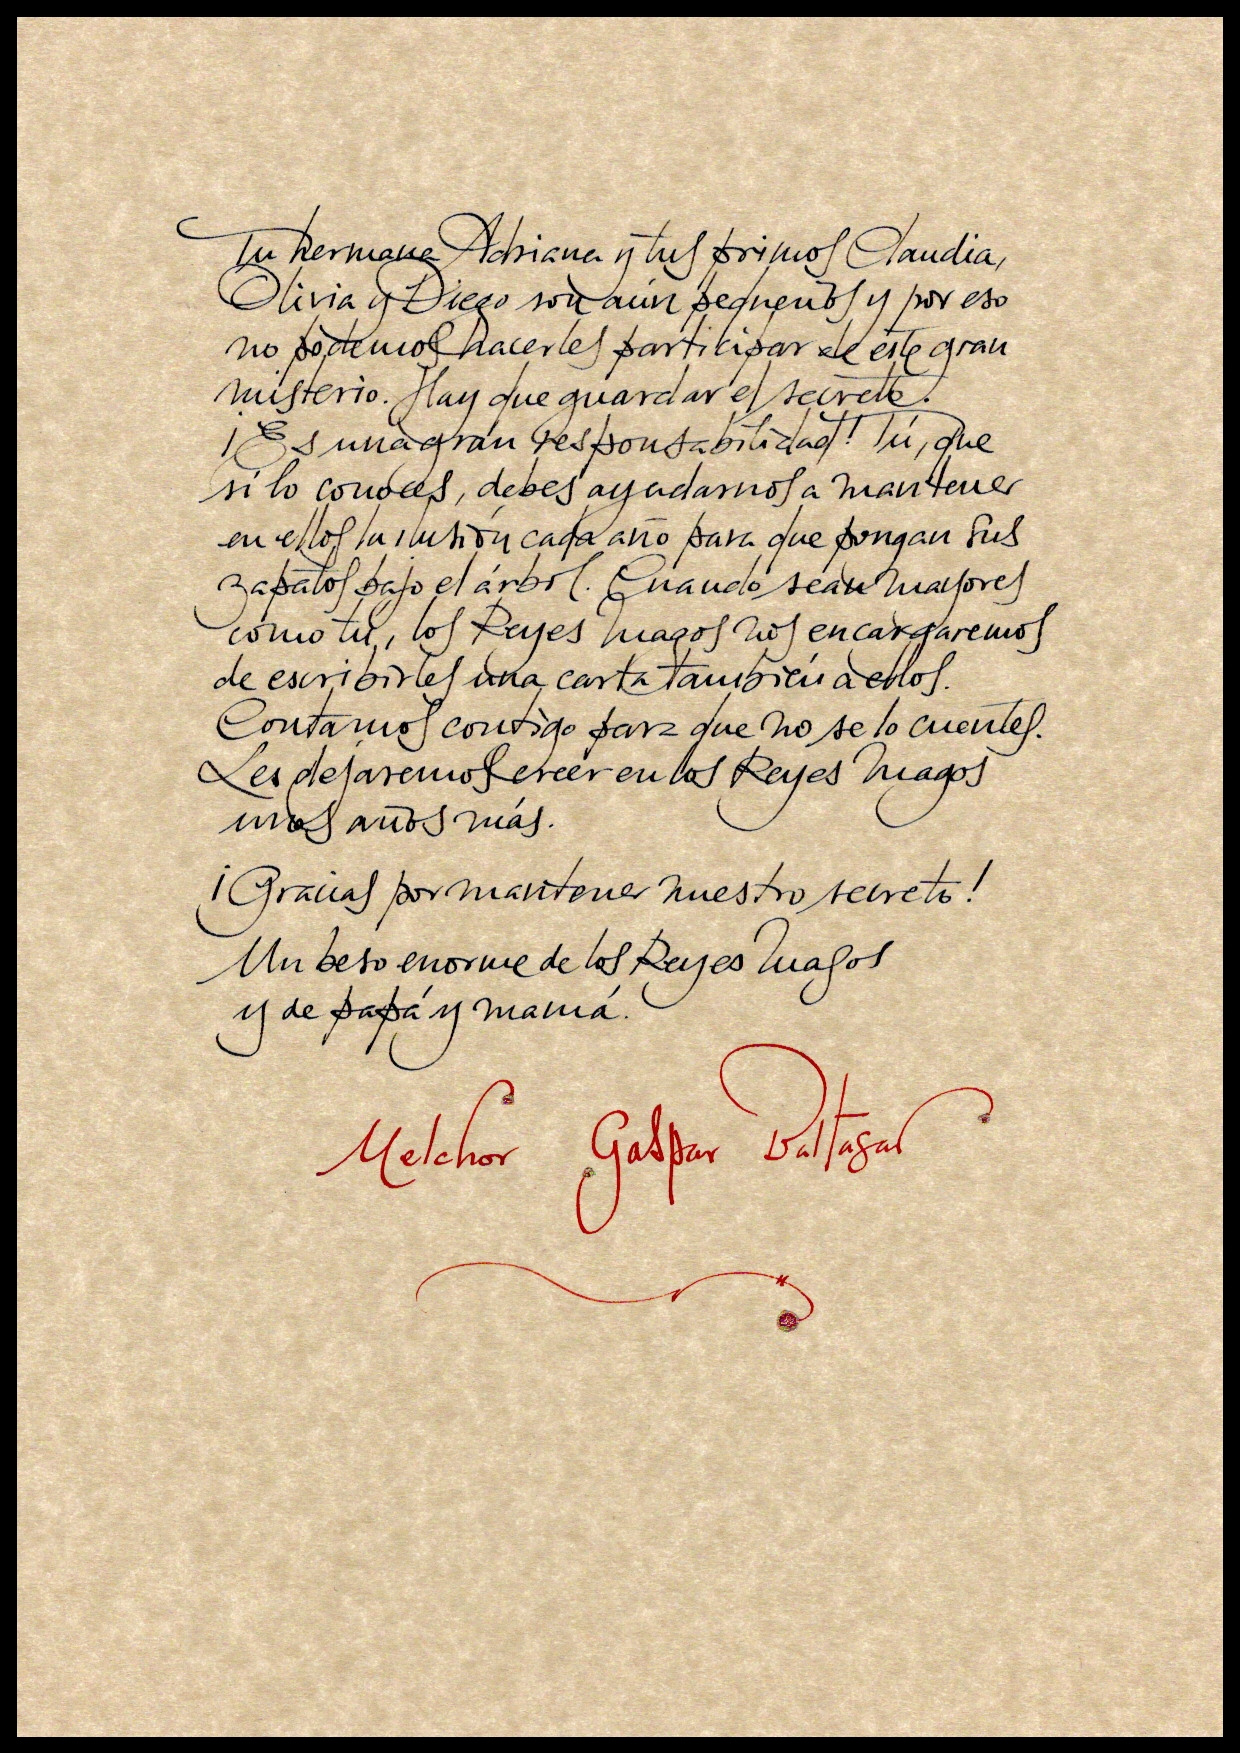 Tu hermana Adriana y tus primos Claudia,
Olivia y Diego son aún pequeños y por eso
no podemos hacerles participar de este gran
misterio. Hay que guardar el secreto.
¡Es una gran responsabilidad! Tú, que
sí lo conoces, debes ayudarnos a mantener
en ellos la ilusión cada año para que pongan sus
zapatos bajo el árbol. Cuando sean mayores
como tú, los Reyes Magos nos encargaremos
de escribirles una carta también a ellos.
Contamos contigo para que no se lo cuentes.
Les dejaremos creer en los Reyes Magos
unos años más.
¡Gracias por mantener nuestro secreto!
Un beso enorme de los Reyes Magos
y de papá y mamá.
Melchor Gaspar Baltasar